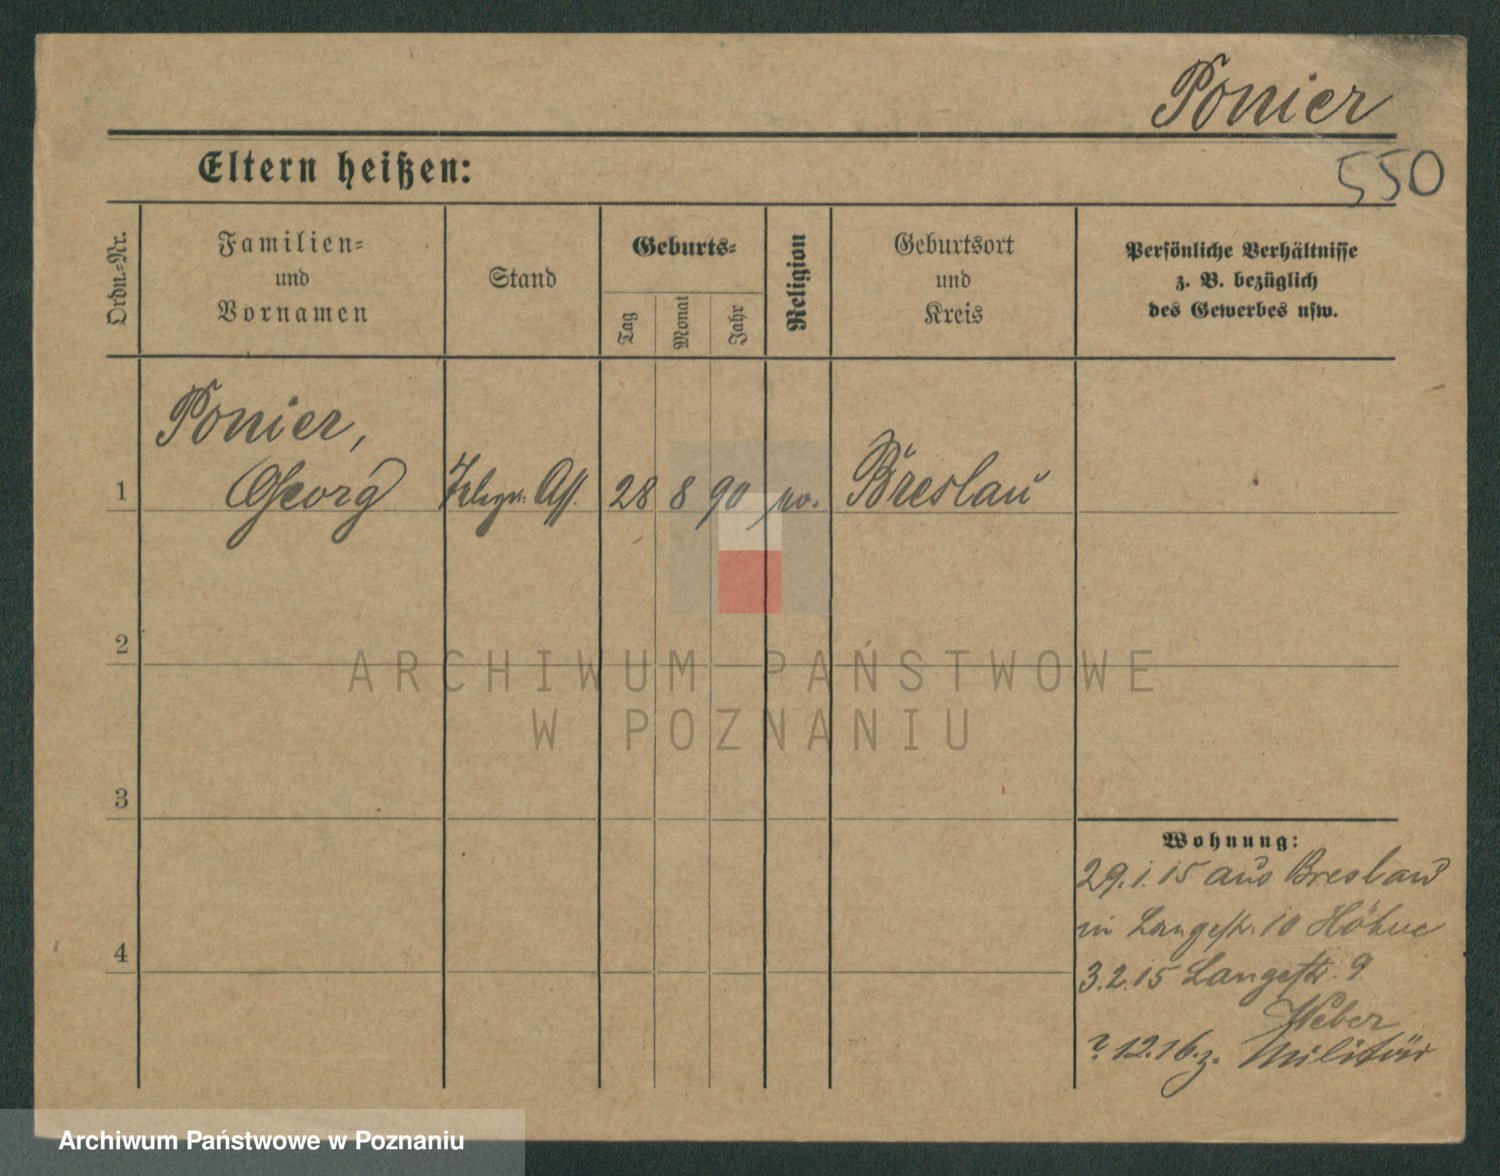 Ponier
550
Eltern heißen:
Ordn.-Nr.
Familien-
und
Vornamen
Stand
Geburts-
Tag
Monat
Jahr
Religion
Geburtsort
und
Kreis
Persönliche Verhältnisse
z. B. bezüglich
des Gewerbes usw.
Ponier,
1 Georg Telegr. Ass. 28 8 90 Breslau
2
3
4
Wohnung:
29.1.15 aus Breslau
in Langestr. 10 Höhne
3.2.15 Langestr. 9
Weber
? 12.16 z. Militär
ARCHIWUM PAŃSTWOWE
W POZNANIU
Archiwum Państwowe w Poznaniu